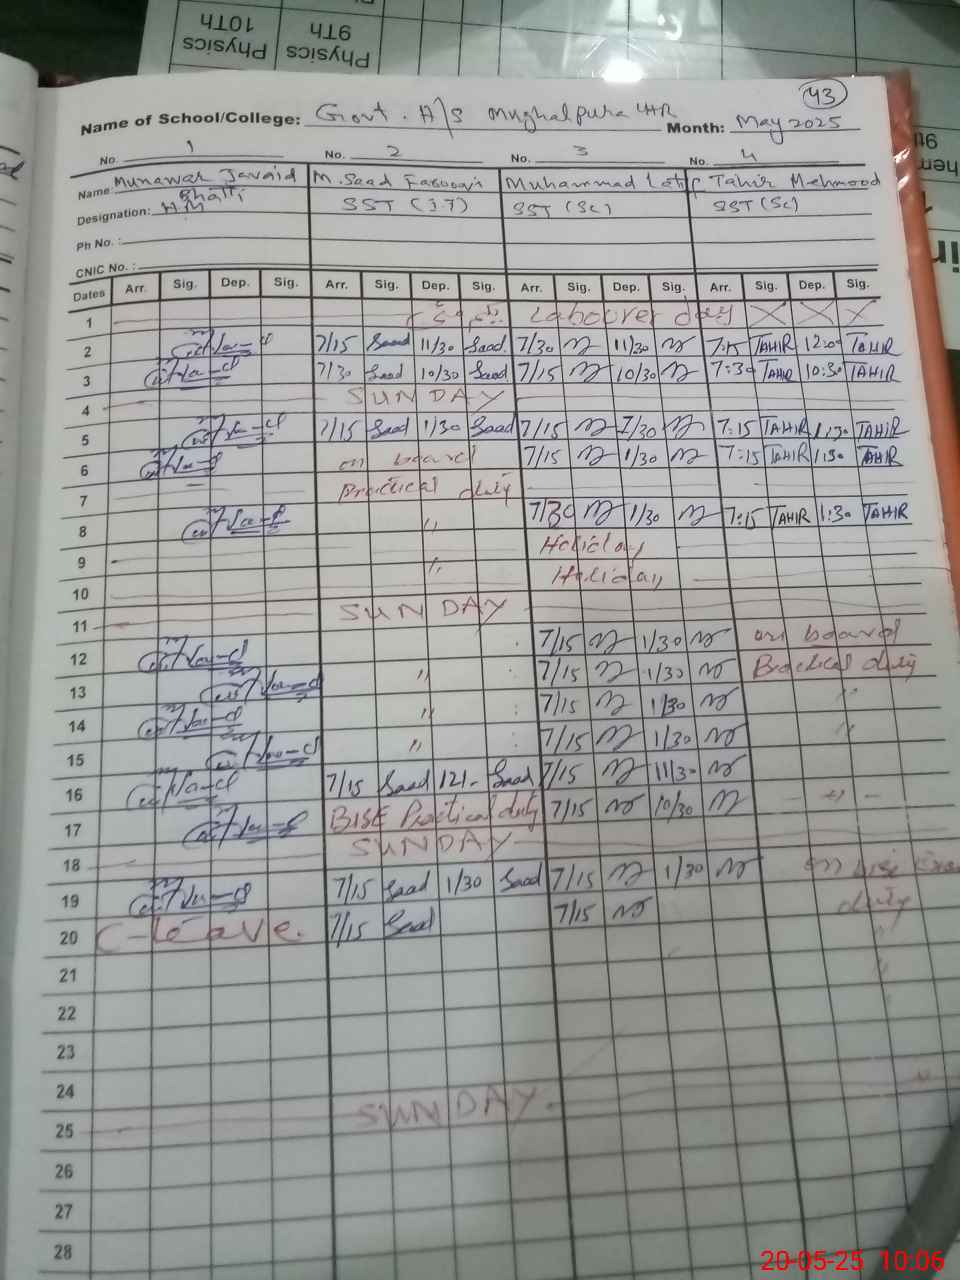 10TH 9TH
Physics Physics
43
Name of School/College: Govt. H/S Mughalpura LHR Month: May 2025
No. 1 No. 2 No. 3 No. 4
Name: Munawar Javaid Bhatti M. Saad Farooqi Muhammad Latif Tahir Mehmood
Designation: H.M SST (I.T) SST (Sc) SST (Sc)
Ph No. :
CNIC No. :
Dates Arr. Sig. Dep. Sig. Arr. Sig. Dep. Sig. Arr. Sig. Dep. Sig. Arr. Sig. Dep. Sig.
1 Labouer day X X X
2 7/15 Saad 11/30 Saad 7/30 11/30 7:15 TAHIR 12:30 TAHIR
3 7/30 Saad 10/30 Saad 7/15 10/30 7:30 TAHIR 10:30 TAHIR
4 SUNDAY
5 7/15 Saad 1/30 Saad 7/15 1/30 7:15 TAHIR 1:30 TAHIR
6 on board 7/15 1/30 7:15 TAHIR 1:30 TAHIR
7 Practical duty
8 " 7/30 1/30 7:15 TAHIR 1:30 TAHIR
9 " Holiday
10 Holiday
11 SUNDAY
12 7/15 1/30 on board
13 " 7/15 1/30 Practical duty
14 " 7/15 1/30 "
15 " 7/15 1/30 "
16 7/15 Saad 12/- Saad 7/15 11/30
17 BISE Practical duty 7/15 10/30 - " -
18 SUNDAY
19 7/15 Saad 1/30 Saad 7/15 1/30 on BISE Exa
20 C-leave. 7/15 Saad 7/15 duty
21 "
22
23
24
25 SUNDAY.
26
27
28
20-05-25 10:06